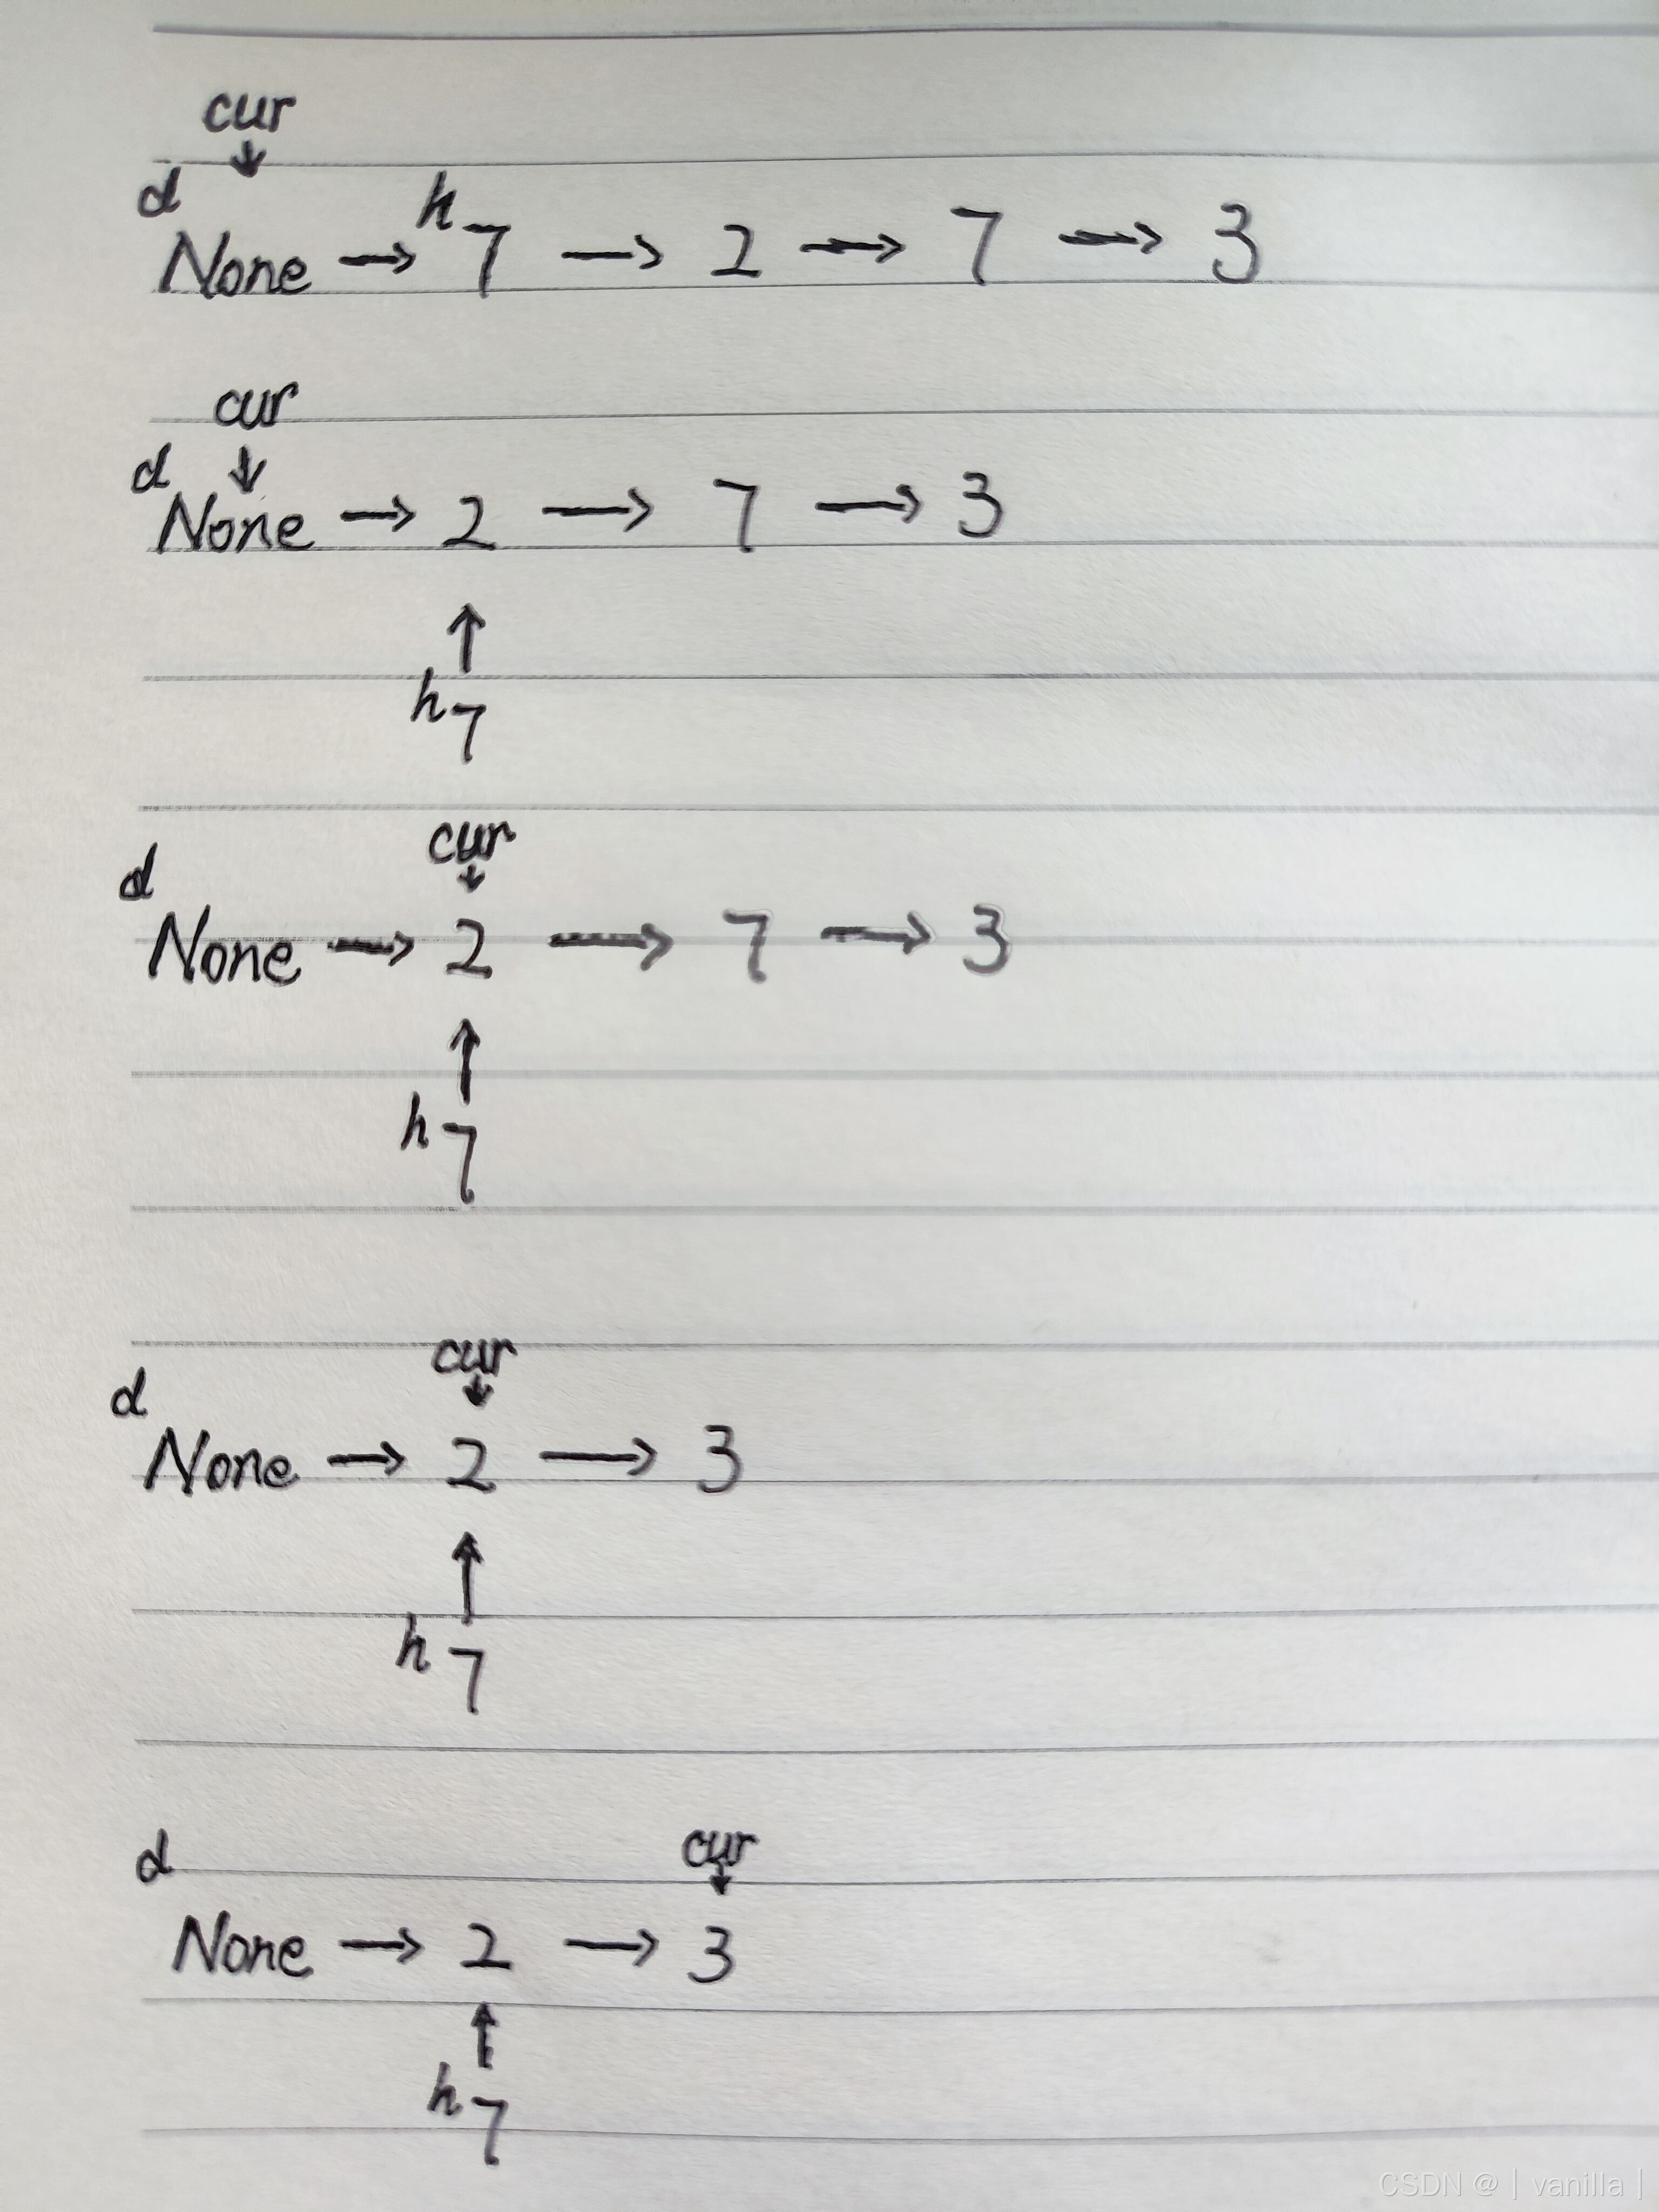 cur
↓
d h
None → 7 → 2 → 7 → 3
cur
d ↓
None → 2 → 7 → 3
↑
h 7
cur
d ↓
None → 2 → 7 → 3
↑
h 7
cur
d ↓
None → 2 → 3
↑
h 7
d cur
↓
None → 2 → 3
↑
h 7
CSDN @ | vanilla |